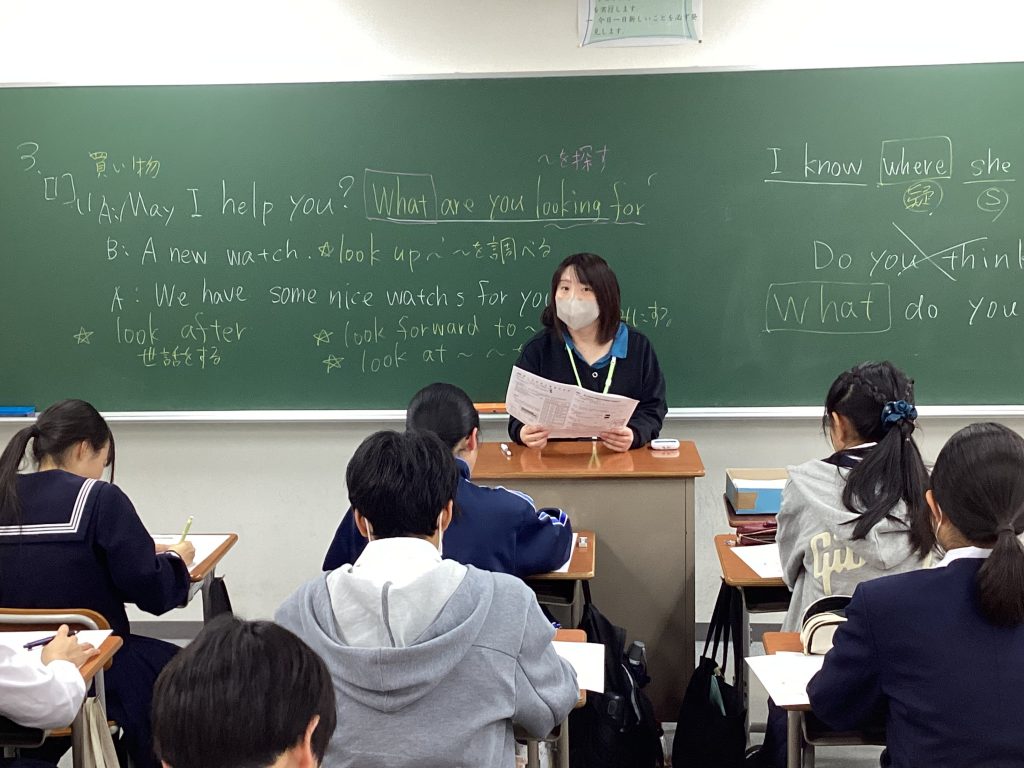 を実行します
一今日一日新しいことを必ず発
見します.
3.
買い物
～を探す
[1]
(1) A: May I help you? What are you looking for
B: A new watch. ☆look up～ ～を調べる
A: We have some nice watch s for you
☆ look after
世話をする
☆ look forward to ～
にする
☆ look at ～ ～
I know where she
疑
S
Do you think
What do you